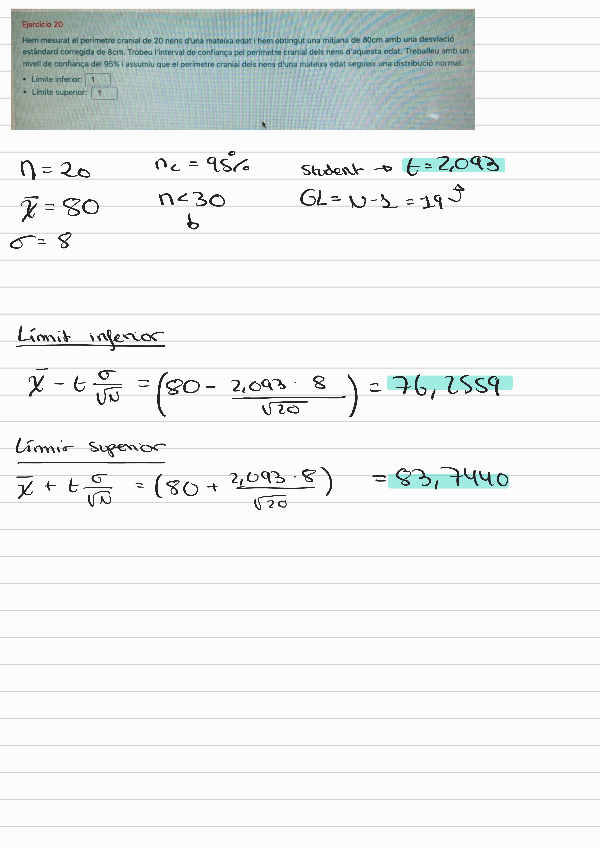 Ejercicio 20
Hem mesurat el perímetre cranial de 20 nens d'una mateixa edat i hem obtingut una mitjana de 80cm amb una desviació
estàndard corregida de 8cm. Trobeu l'interval de confiança pel perímetre cranial dels nens d'aquesta edat. Treballeu amb un
nivell de confiança del 95% i assumiu que el perímetre cranial dels nens d'una mateixa edat segueix una distribució normal.
• Límite inferior: 1
• Límite superior: 1
n = 20 nc = 95% Student → t = 2,093
x̄ = 80 n < 30 GL = N - 1 = 19
σ = 8
Límit inferior
x̄ - t σ/√N = (80 - 2,093 · 8/√20) = 76,2559
Límit superior
x̄ + t σ/√N = (80 + 2,093 · 8/√20) = 83,7440